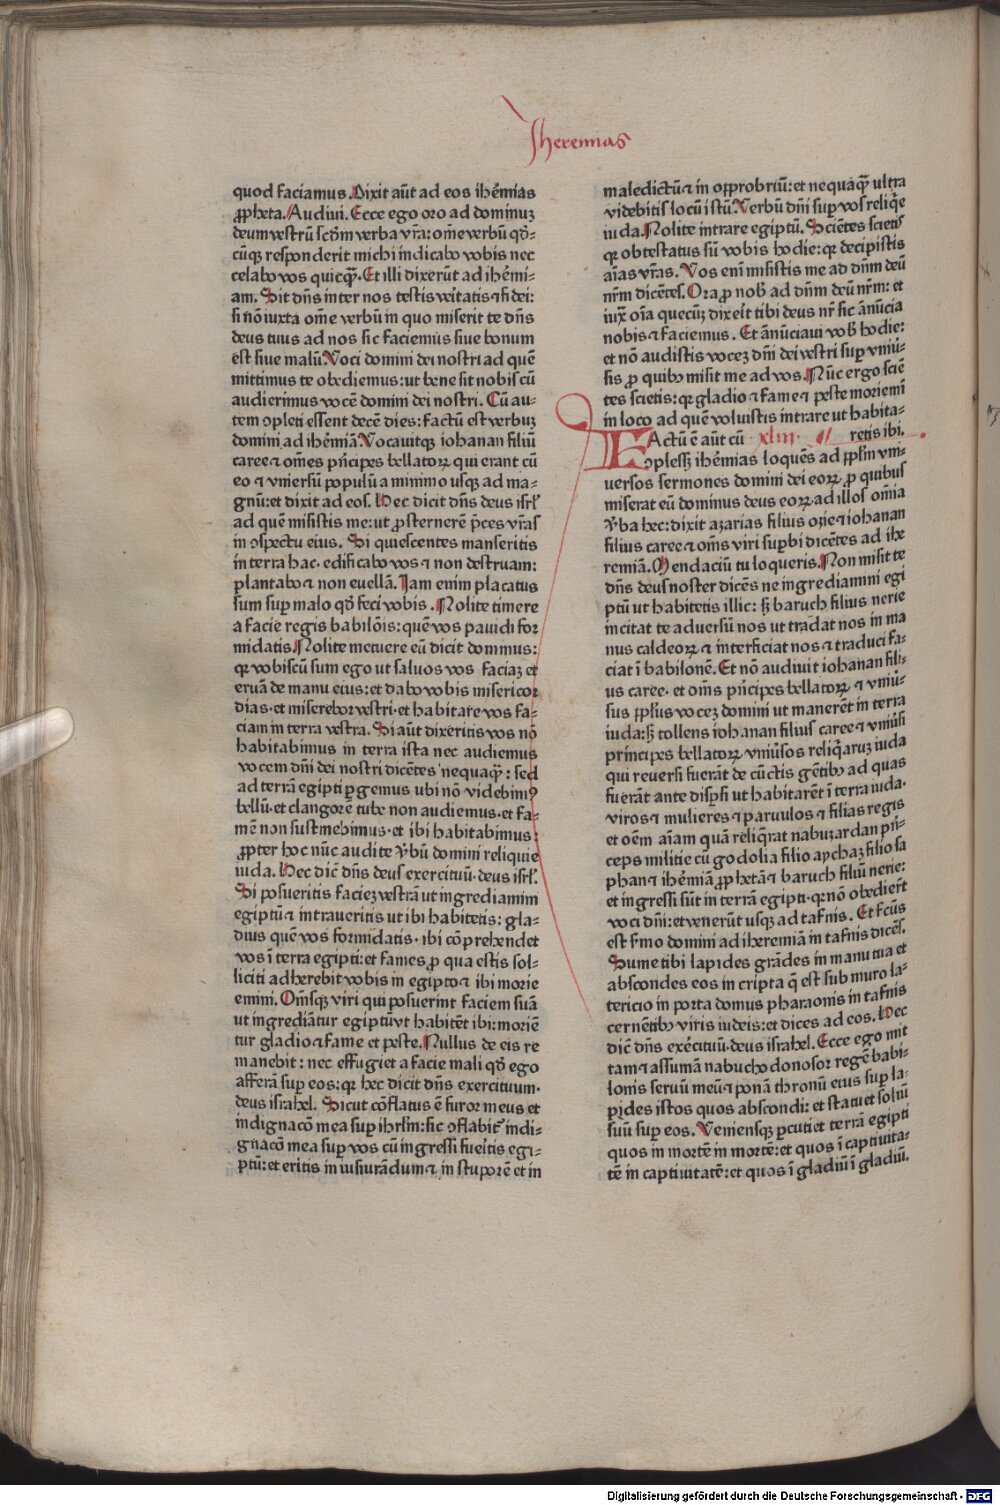 Jheremias
quod faciamus. Dixit aūt ad eos ihēmias
ꝓpheta. Audivi. Ecce ego oro ad dominuꝫ
deum vestrū scd̄m verba vr̄a: om̄e verbū qd̄⸗
cūqꝫ responderit michi indicabo vobis nec
celabo vos quicq̄ꝫ. Et illi dixerūt ad ihēmi⸗
am. Sit dn̄s inter nos testis vēitatis ⁊ fidei:
si nō iuxta om̄e verbū in quo miserit te dn̄s
deus tuus ad nos sic faciemus siue bonum
est siue malū. Voci domini dei nostri ad quē
mittimus te obediemus: ut bene sit nobis cū
audierimus vocē domini dei nostri. Cū au⸗
tem ꝯpleti essent decē dies: factū est verbuꝫ
domini ad ihēmiā. Vocauitqꝫ iohanan filiū
caree ⁊ om̄es pn̄cipes bellatoꝝ qui erant cū
eo ⁊ vniersū populū a minimo usqꝫ ad ma⸗
gnū: et dixit ad eos. Hec dicit dn̄s deus isrl̄
ad quē misistis me: ut ꝓsternerē p̄ces vr̄as
in ꝯspectu eius. Si quiescentes manseritis
in terra hac. edificabo vos ⁊ non destruam:
plantabo ⁊ non euellā. Jam enim placatus
sum suꝑ malo qd̄ feci vobis. Nolite timere
a facie regis babilōis: quē vos pauidi for
midatis. Nolite metuere eū dicit dominus:
qꝛ vobiscū sum ego ut saluos vos faciaꝫ et
eruā de manu eius: et dabo vobis misericor
dias. et miserebor vestri. et habitare vos fa⸗
ciam in terra vestra. Si aūt dixeritis vos nō
habitabimus in terra ista nec audiemus
vocem dn̄i dei nostri dicētes nequaq̄ꝫ: sed
ad terrā egipti ꝑgemus ubi nō videbimꝰ
bellū. et clangorē tube non audiemus. et fa⸗
mē non sustinebimus. et ibi habitabimus:
ꝓpter hoc nūc audite v̄bū domini reliquie
iuda. Hec dic̄ dn̄s deus exercituū. deus isrl̄.
Si posueritis facieꝫ vestrā ut ingrediamini
egiptū ⁊ intraueritis ut ibi habitetis: gla⸗
dius quē vos formidatis. ibi cōprehendet
vos ī terra egipti: et fames ꝓ qua estis sol⸗
liciti adherebit vobis in egipto ⁊ ibi morie
emini. Om̄sqꝫ viri qui posuerint faciem suā
ut ingrediātur egiptū vt habitēt ibi: moriē
tur gladio ⁊ fame et peste. Nullus de eis re
manebit: nec effugiet a facie mali qd̄ ego
afferā suꝑ eos: qꝛ hec dicit dn̄s exercituum.
deus israhel. Sicut cōflatus ē furor meus et
indignacō mea suꝑ ihrl̄m: sic ꝯflabit᷑ indi⸗
gnacō mea suꝑ vos cū ingressi fueītis egi⸗
ptū: et eritis in iusiurādum ⁊ in stuporē et in
maledictū ⁊ in oꝓbriū: et nequaq̄ꝫ ultra
videbitis locū istū. Verbū dn̄i suꝑ vos reliq̄e
iuda. Nolite intrare egiptū. Scientes scietis
qꝛ obtestatus sū vobis hodie: qꝛ decipistis
aīas vr̄as. Vos enī misistis me ad dn̄m deū
nr̄m dicētes. Ora ꝓ nob̄ ad dn̄m deū nr̄m: et
iuxͣ oīa quecūqꝫ dixeīt tibi deus nr̄ sic ānūcia
nobis ⁊ faciemus. Et ānūciaui vob̄ hodie:
et nō audistis voceꝫ dn̄i dei vestri suꝑ vniū⸗
sis ꝓ quibꝰ misit me ad vos. Nūc ergo sciē
tes scietis: qꝛ gladio ⁊ fame ⁊ peste moriemī
in loco ad quē voluistis intrare ut habita⸗
retis ibi.
xliii.
FActū ē aūt cū
ꝯpless̄ꝫ ihēmias loquēs ad ppl̄m vni⸗
uersos sermones domini dei eoꝝ ꝓ quibus
miserat eū dominus deus eoꝝ ad illos om̄ia
v̄ba hec: dixit azarias filius ozie ⁊ iohanan
filius caree ⁊ om̄s viri suꝑbi dicētes ad ihe
remiā. Mendaciū tu loqueris. Non misit te
dn̄s deus noster dicēs ne ingrediamini egi
ptū ut habitetis illic: sꝫ baruch filius nerie
incitat te aduersū nos ut tradat nos in ma
nus caldeoꝝ ⁊ interficiat nos ⁊ traduci fa⸗
ciat ī babilonē. Et nō audiuit iohanan fili⸗
us caree. et om̄s pn̄cipes bellatoꝝ ⁊ vniū⸗
sus ppl̄us voceꝫ domini ut manerēt in terra
iuda: sꝫ tollens iohanan filius caree ⁊ vniūsi
principes bellatoꝝ vniūsos reliq̄aruꝫ iuda
qui reuersi fuerāt de cūctis gētibꝰ ad quas
fuerāt ante disꝑsi ut habitarēt ī terra iuda.
viros ⁊ mulieres ⁊ paruulos ⁊ filias regis
et oēm aīam quā reliq̄rat nabuzardan pn̄⸗
ceps militie cū godolia filio aychaꝫ filio sa
phan ⁊ ihēmiā ꝓphetā ⁊ baruch filiū nerie:
et ingressi sūt in terrā egipti. qꝛ nō obedier̄t
voci dn̄i: et venerūt usqꝫ ad tafnis. Et fc̄us
est s̄mo domini ad iheremiā in tafnis dicēs.
Sume tibi lapides grādes in manu tua et
abscondes eos in cripta q̄ est sub muro la⸗
tericio in porta domus pharaonis in tafnis
cernētibꝰ viris iudeis: et dices ad eos. Hec
dic̄ dn̄s exēcituū. deus israhel. Ecce ego mit
tam ⁊ assumā nabuchodonosor regē babi⸗
lonis seruū meū ⁊ ponā thronū eius suꝑ la⸗
pides istos quos abscondi: et statuet soliū
suū suꝑ eos. Veniensqꝫ ꝑcutiet terrā egipti
quos in mortē in mortē: et quos ī captiuita⸗
tē in captiuitatē: et quos ī gladiū ī gladiū.
Digitalisierung gefördert durch die Deutsche Forschungsgemeinschaft - DFG